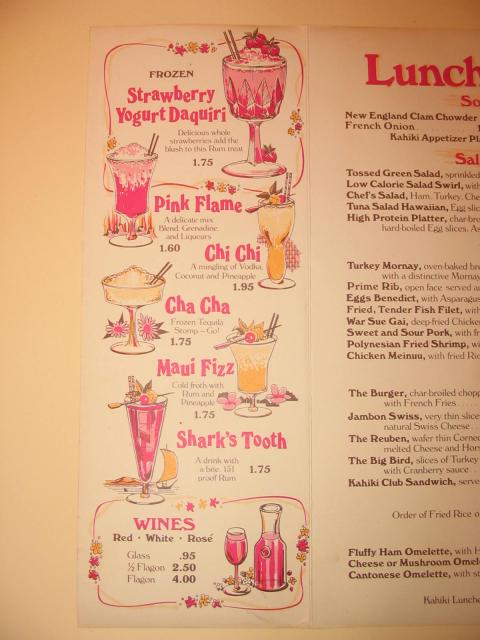 FROZEN
Strawberry
Yogurt Daquiri
Delicious whole
strawberries add the
blush to this Rum treat
1.75
Pink Flame
A delicate mix
Blend, Grenadine
and Liqueurs
1.60
Chi Chi
A mingling of Vodka,
Coconut and Pineapple
1.95
Cha Cha
Frozen Tequila
Stomp—Go!
1.75
Maui Fizz
Cold froth with
Rum and
Pineapple
1.75
Shark's Tooth
A drink with
a bite. 151
proof Rum
1.75
WINES
Red · White · Rosé
Glass .95
½ Flagon 2.50
Flagon 4.00
Lunch
New England Clam Chowder
French Onion
Kahiki Appetizer
Tossed Green Salad, sprinkled
Low Calorie Salad Swirl, with
Chef's Salad, Ham, Turkey,
Tuna Salad Hawaiian, Egg
High Protein Platter,
hard-boiled Egg slices,
Turkey Mornay, oven-baked
with a distinctive Mornay
Prime Rib, open face served
Eggs Benedict, with Asparagus
Fried, Tender Fish Filet,
War Sue Gai, deep-fried
Sweet and Sour Pork, with
Polynesian Fried Shrimp,
Chicken Meinuu, with fried
The Burger, char-broiled
with French Fries
Jambon Swiss, very thin
natural Swiss Cheese
The Reuben, wafer thin
melted Cheese and
The Big Bird, slices of Turkey
with Cranberry sauce
Kahiki Club Sandwich,
Order of Fried Rice
Fluffy Ham Omelette, with
Cheese or Mushroom
Cantonese Omelette, with
Kahiki